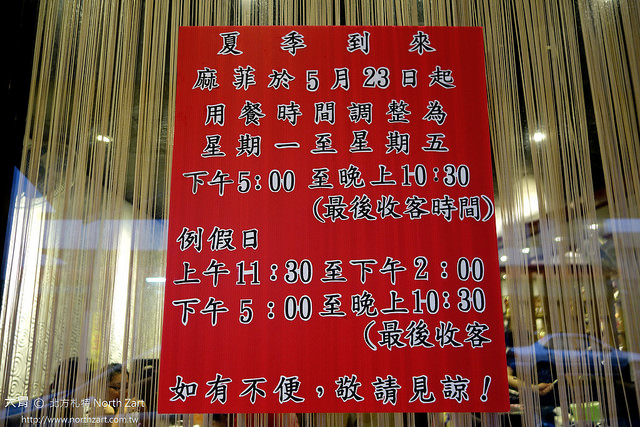 夏季到來
麻菲於5月23日起
用餐時間調整為
星期一至星期五
下午5：00 至晚上10:30
(最後收客時間)
例假日
上午11:30至下午2：00
下午5：00至晚上10:30
(最後收客
如有不便，敬請見諒！
大胃 © 北方札特 North Zart
http://www.northzart.com.tw